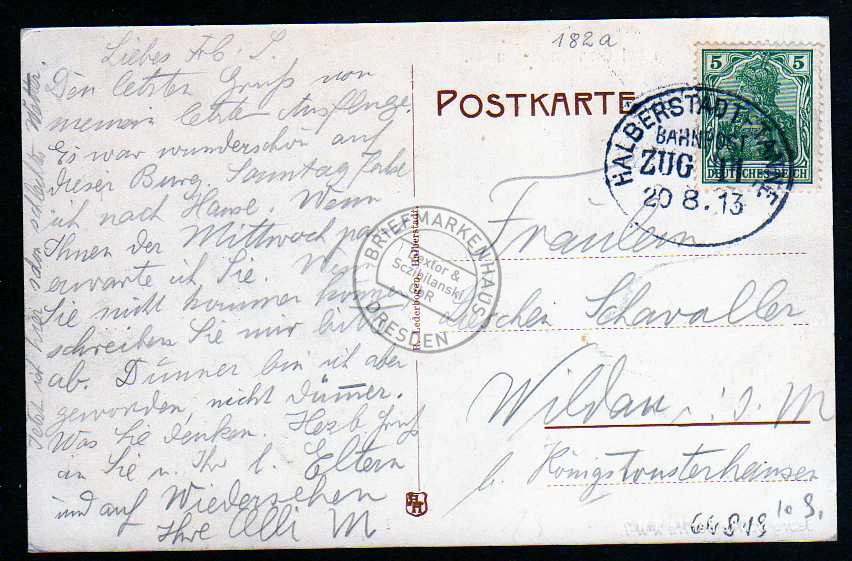 182a
Liebes Frl. S.
Den letzten Gruß von
meinem letzten Ausfluge.
Es war wunderschön auf
dieser Burg. Sonntag fahre
ich nach Hause. Wenn
Ihnen der Mittwoch paßt
erwarte ich Sie. Wenn
Sie nicht kommen können
schreiben Sie mir bitte
ab. Dünner bin ich aber
geworden, nicht dümmer.
Was Sie denken. Herzl. Gruß
an Sie u. Ihr l. Eltern
und auf Wiedersehen
Ihre Elli M
Jetzt ist hier schon schlechtes Wetter.
POSTKARTE
5 5
DEUTSCHES REICH
HALBERSTADT-TANNE
BAHNPOST
ZUG 11
20 8. 13
Fräulein
Schavaller
Wildau i. d. M
b. Königswusterhausen
Lederbogen, Halberstadt.
BRIEFMARKENHAUS
Textor &
Sczibilanski
GbR
DRESDEN